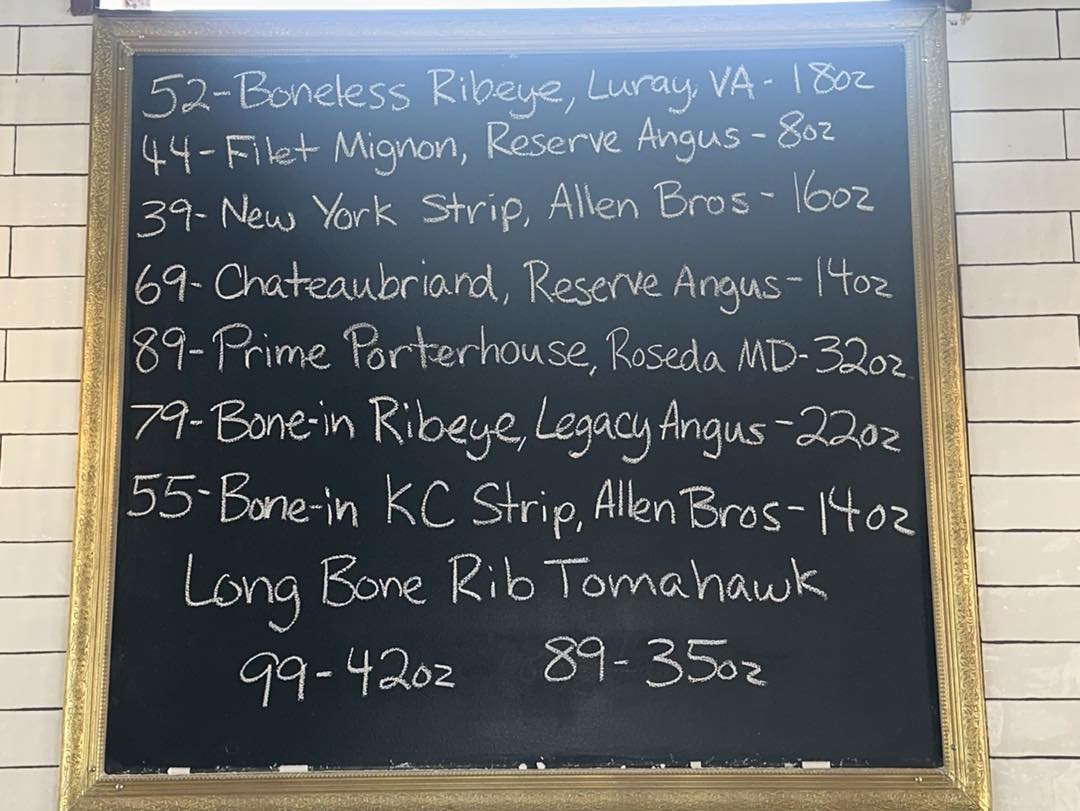 52-Boneless Ribeye, Luray, VA - 18oz
44-Filet Mignon, Reserve Angus - 8oz
39- New York Strip, Allen Bros - 16oz
69- Chateaubriand, Reserve Angus- 14oz
89- Prime Porterhouse, Roseda MD- 32oz
79- Bone-in Ribeye, Legacy Angus - 22oz
55- Bone-in KC Strip, Allen Bros- 14oz
Long Bone Rib Tomahawk
99-42oz 89-35oz